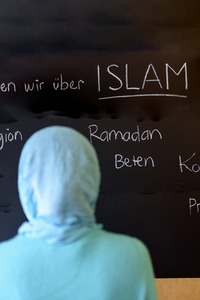 en wir über ISLAM
gion Ramadan
Beten K
Pr